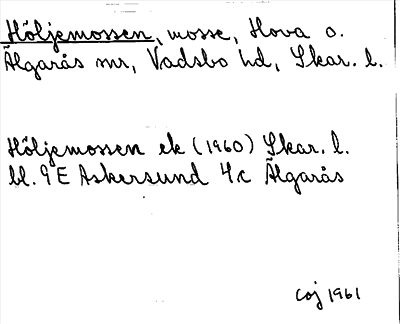 Höljemossen, mosse, Hova o.
Älgarås snr, Vadsbo hd, Skar. l.
Höljemossen ek (1960) Skar. l.
bl. 9E Askersund 4c Älgarås
Coj 1961